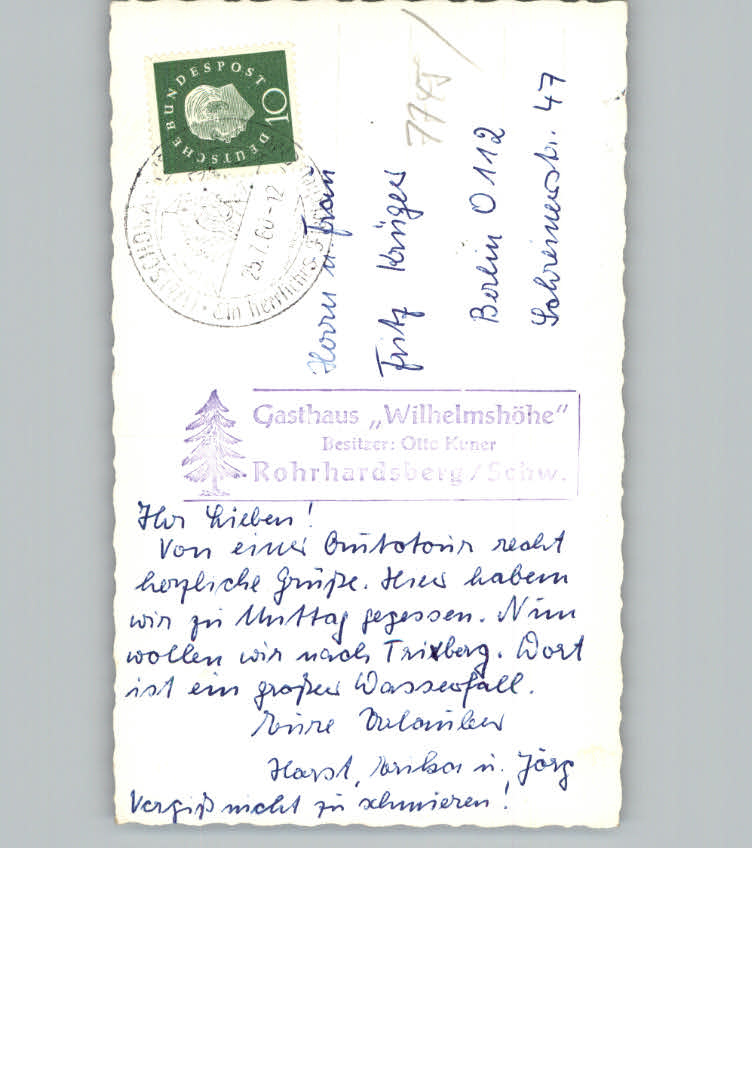 DEUTSCHE BUNDESPOST
10
25.7.60-12
Ein herrliches
7745
Herrn u Frau
Fritz Krüger
Berlin O 112
Schreinerstr. 47
Gasthaus „Wilhelmshöhe"
Besitzer: Otto Kuner
Rohrhardsberg/Schw.
Ihr Lieben!
Von einer Autotour recht
herzliche Grüße. Hier haben
wir zu Mittag gegessen. Nun
wollen wir nach Triberg. Dort
ist ein großer Wasserfall.
Eure Urlauber
Horst, Erika u. Jörg
Vergiß nicht zu schmieren!